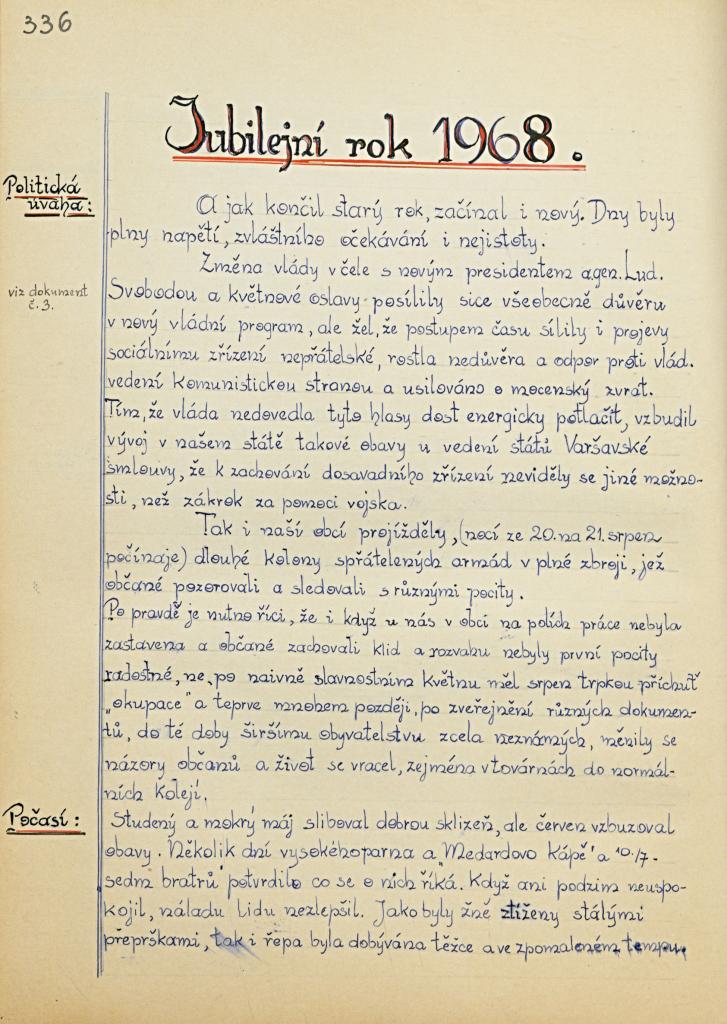 336
Jubilejní rok 1968.
Politická
úvaha:
A jak končil starý rok, začínal i nový. Dny byly
plny napětí, zvláštního očekávání i nejistoty.
Změna vlády v čele s novým presidentem a.gen. Lud.
viz dokument
č. 3.
Svobodou a květnové oslavy posílily sice všeobecně důvěru
v nový vládní program, ale žel, že postupem času sílily i projevy
sociálnímu zřízení nepřátelské, rostla nedůvěra a odpor proti vlád.
vedení Komunistickou stranou a usilováno o mocenský zvrat.
Tím, že vláda nedovedla tyto hlasy dost energicky potlačit, vzbudil
vývoj v našem státě takové obavy u vedení států Varšavské
smlouvy, že k zachování dosavadního zřízení neviděly se jiné možno-
sti, než zákrok za pomoci vojska.
Tak i naší obcí projížděly, (nocí ze 20. na 21. srpen
počínaje) dlouhé kolony spřátelených armád v plné zbroji, jež
občané pozorovali a sledovali s různými pocity.
Po pravdě je nutno říci, že i když u nás v obci na polích práce nebyla
zastavena a občané zachovali klid a rozvahu nebyly první pocity
radostné, ne, po naivně slavnostním květnu měl srpen trpkou příchuť
„okupace" a teprve mnohem později, po zveřejnění různých dokumen-
tů, do té doby širšímu obyvatelstvu zcela neznámých, měnily se
názory občanů a život se vracel, zejména v továrnách do normál-
ních kolejí.
Počasí:
Studený a mokrý máj sliboval dobrou sklizeň, ale červen vzbuzoval
obavy. Několik dní vysokéhoparna a „Medardovo kápě" a 10./7.
sedm bratrů potvrdilo co se o nich říká. Když ani podzim neuspo-
kojil, náladu lidu nezlepšil. Jako byly žně ztíženy stálými
přeprškami, tak i řepa byla dobývána těžce a ve zpomaleném tempu.